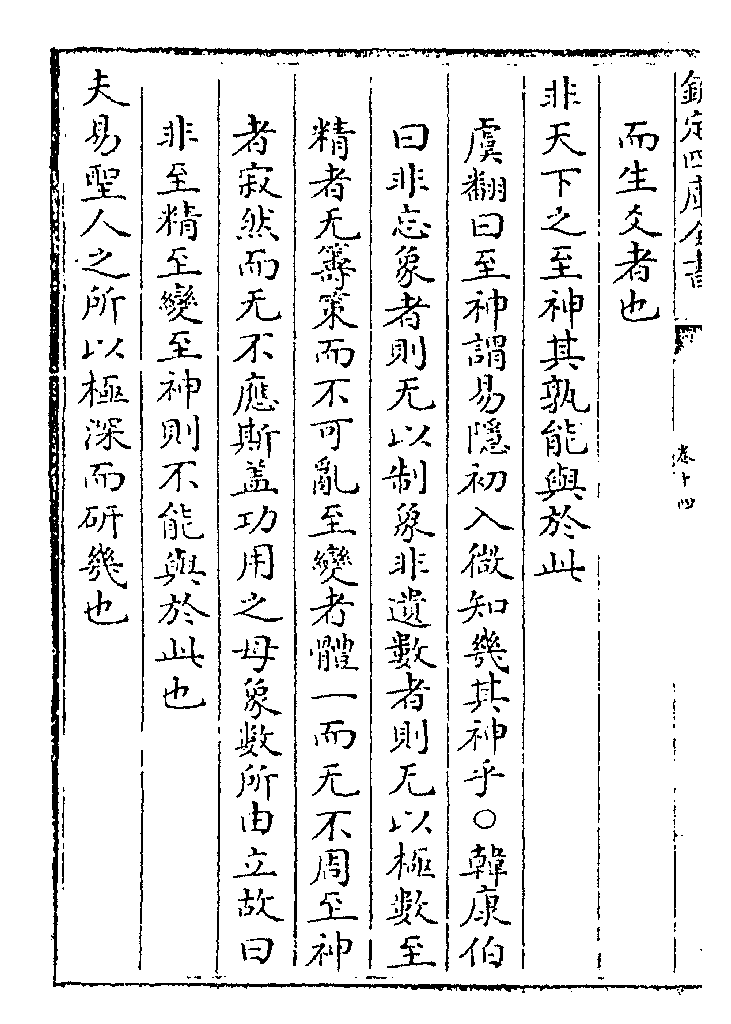 欽定四庫全書
卷十四
而生爻者也
非天下之至神其孰能與於此
虞翻曰至神謂易隠初入微知幾其神乎○韓康伯
曰非忘象者則无以制象非遺數者則无以極數至
精者无籌策而不可亂至變者體一而无不周至神
者寂然而无不應斯蓋功用之母象數所由立故曰
非至精至變至神則不能與於此也
夫易聖人之所以極深而研幾也